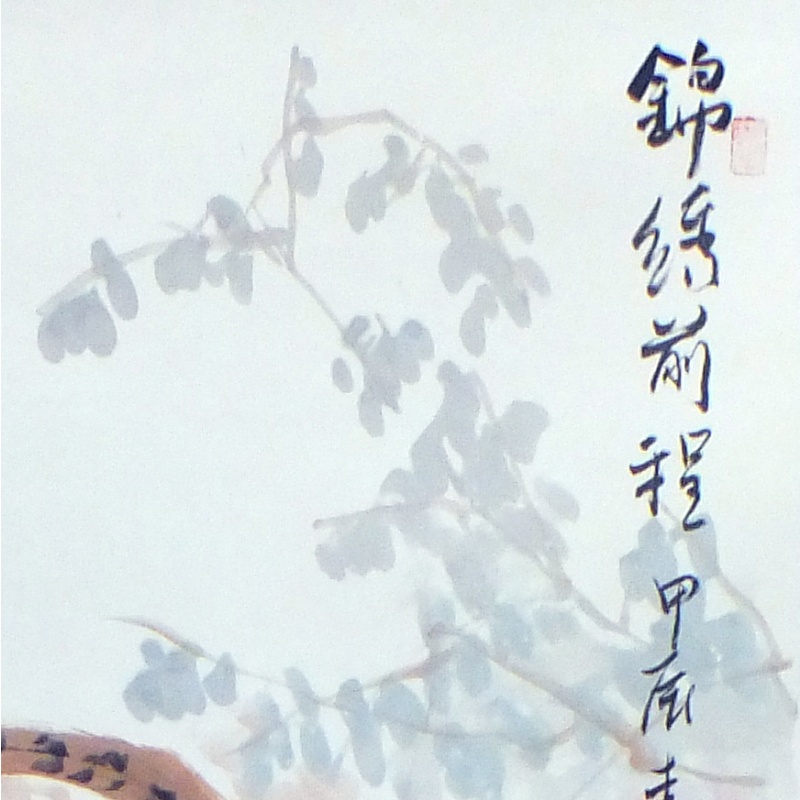 錦绣前程 甲辰